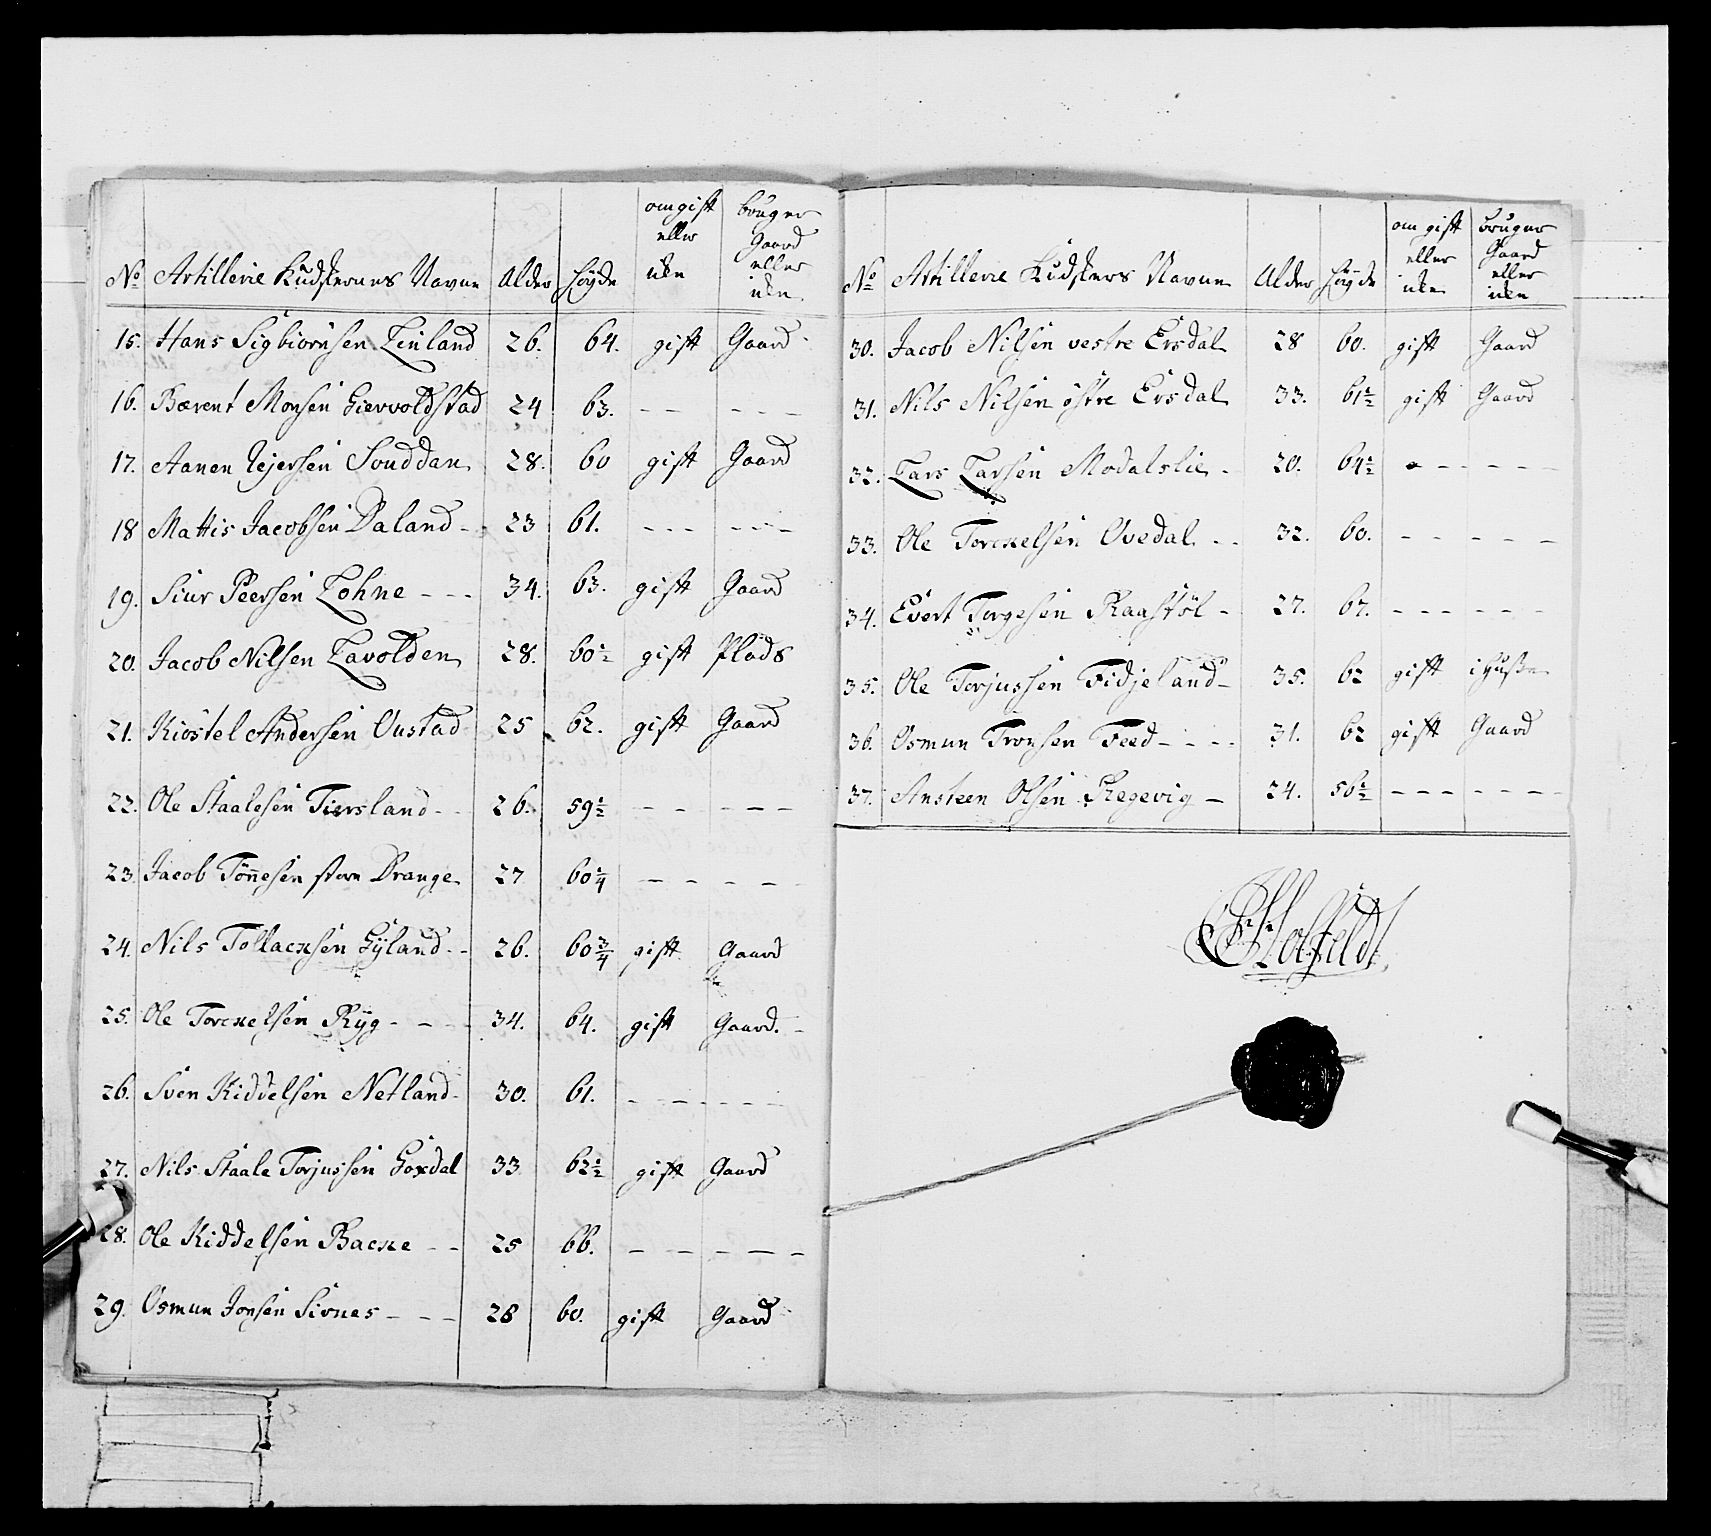 No Artillerie Kudskernes Navne Alder Høyde om gift eller ikke bruger Gaard eller ikke
15. Hans Sigbiørnsen Linland 26. 64. gift Gaard
16. Bærent Monsen Giervoldstad 24 63. - - - - -
17. Aanen Rejersen Souddan 28. 60 gift Gaard
18 Mattis Jacobsen Daland - 23 61. - - - - - -
19. Siur Peersen Lohne - - - 34. 63. gift Gaard
20. Jacob Nilsen Lavolden 28. 60½ gift Plads
21. Kiøstel Andersen Oustad 25 62. gift Gaard
22. Ole Staalesen Tiersland - - 26. 59½ - - - - -
23. Jacob Tönnesen store Drange 27 60¼ - - - - -
24. Nils Tollacksen Gÿland - - 26. 60¾ gift Gaard
25. Ole Torckelsen Rÿg - - - 34. 64. gift Gaard. -
26. Sven Kiddelsen Netland - 30. 61. - - - - - -
27. Nils Staale Torjussen Goxdal 33 62½ gift Gaard
28. Ole Kiddelsen Backe - - 25 66. - - - - -
29. Osmun Jonsen Sirnes - - - 28 60. gift Gaard
No Artillerie Kudskers Navne Alder Høyde om gift eller ikke bruger Gaard eller ikke
30. Jacob Nilsen vestre Ersdal 28 60. gift Gaard
31. Nils Nilsen östre Ersdal 33. 61½ gift Gaard
32. Lars Larsen Modalslie - 20. 64½ - - - - - -
33. Ole Torckelsen Ovedal - - 32. 60. - - - - -
34. Evert Torgesen Raastöl - 27. 67. - - - - - -
35. Ole Torjussen Fidjeland - 35. 62 gift i Huße
36. Osmun Tronsen Feed - - - - 31. 62 gift Gaard
37. Ansteen Olsen Regevig - 24. 56½ - - - - - - -
Holfeldt